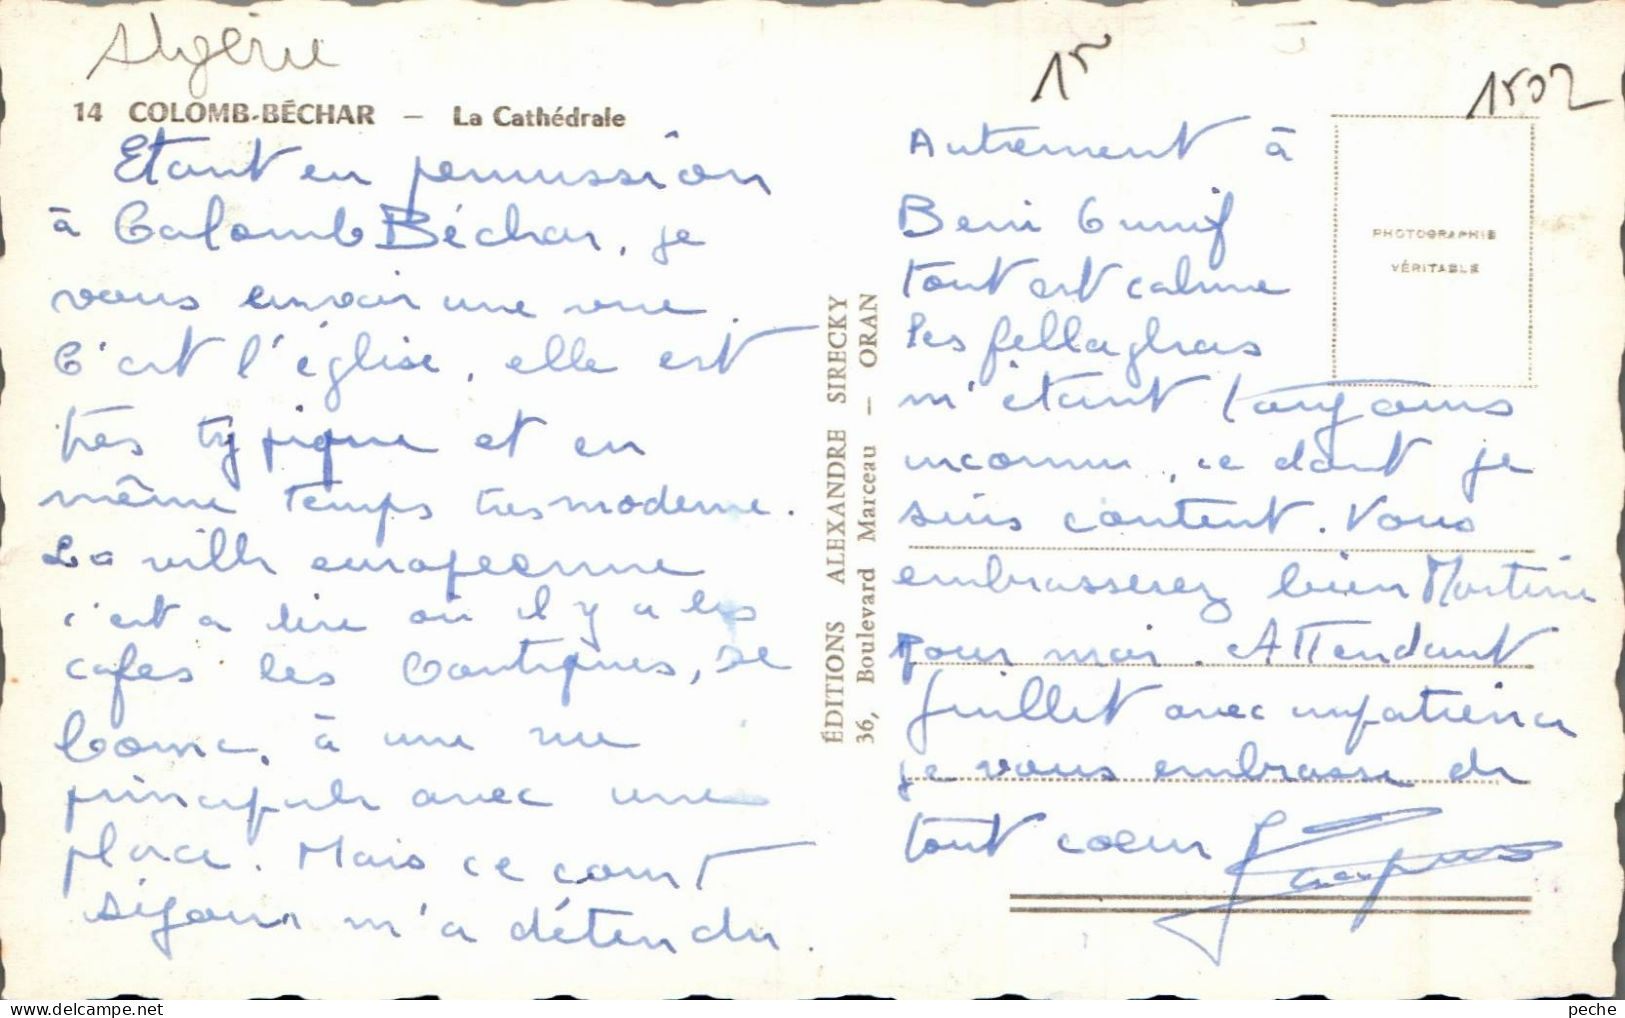 Algérie
14 COLOMB-BÉCHAR — La Cathédrale
Etant en permission
à Colomb Béchar, je
vous envoir une vue.
C'est l'église, elle est
très typique et en
même temps tres moderne.
La ville européenne
c'est a dire où il y a les
cafés les boutiques, se
borne, à une rue
principale avec une
place. Mais ce court
séjour m'a détendu.
ÉDITIONS ALEXANDRE SIRECKY
36, Boulevard Marceau — ORAN
15
1502
PHOTOGRAPHIE
VÉRITABLE
Autrement à
Beni Ounif
tout est calme
les fellaghas
m'étant toujours
inconnu, ce dont je
suis content. Vous
embrasserez bien Martine
pour moi. Attendant
Juillet avec impatience
je vous embrasse de
tout coeur Jacques
peche